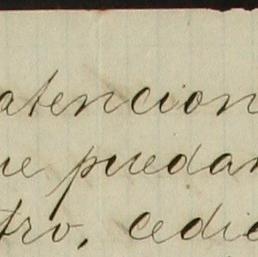 atencion
ue puedan
tro, cedie